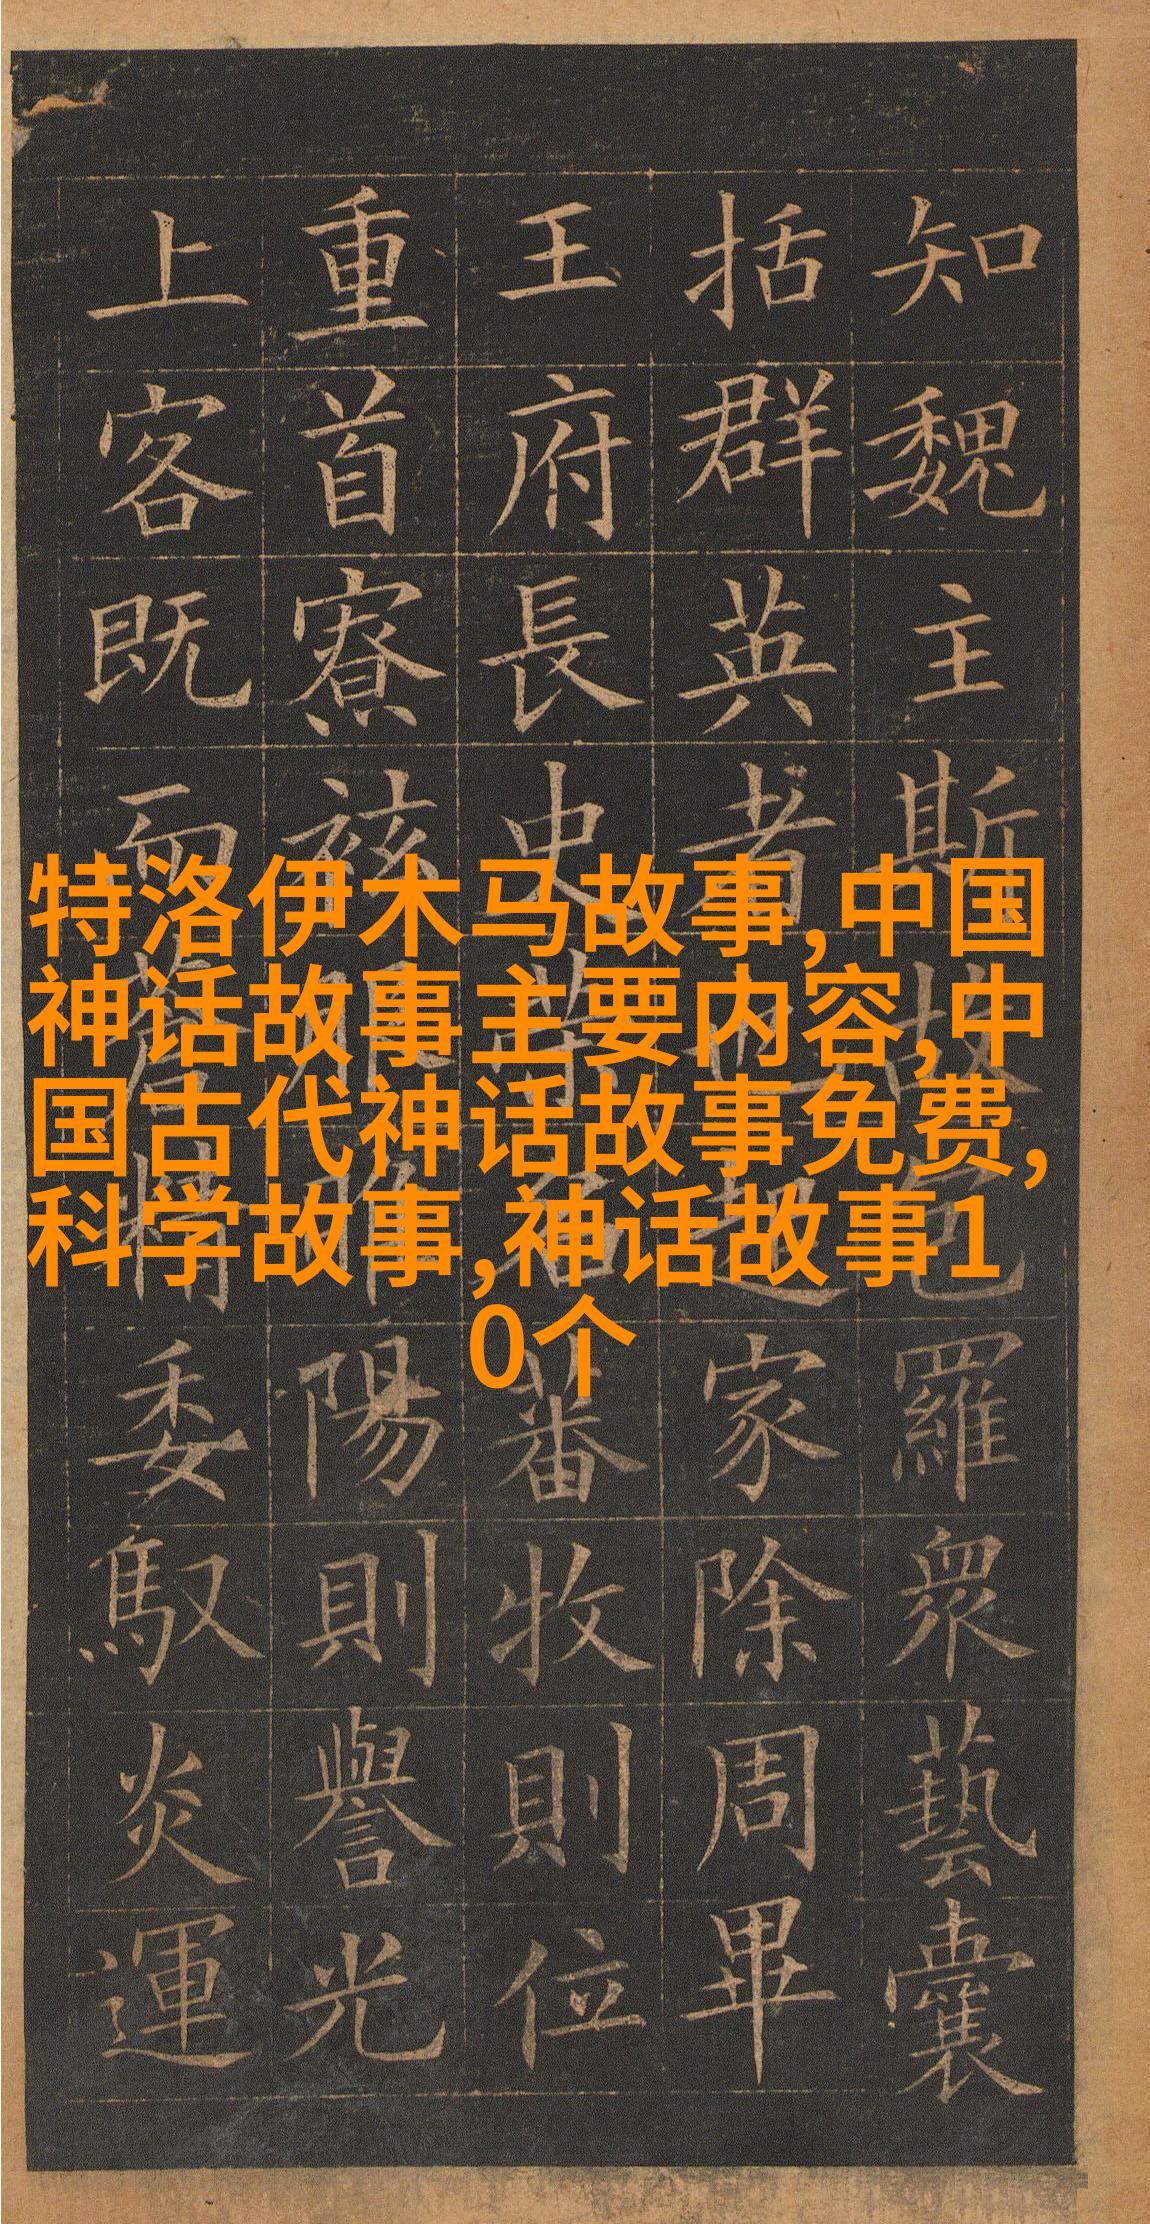 知魏主斯故包羅衆藝囊
括群英者也起家除周畢
王府長史榮名蕃牧則位
重首寮袨服睢陽則譽光
上客既而蒼精委馭炎運
特洛伊木马故事,中国
神话故事主要内容,中
国古代神话故事免费,
科学故事,神话故事1
0个